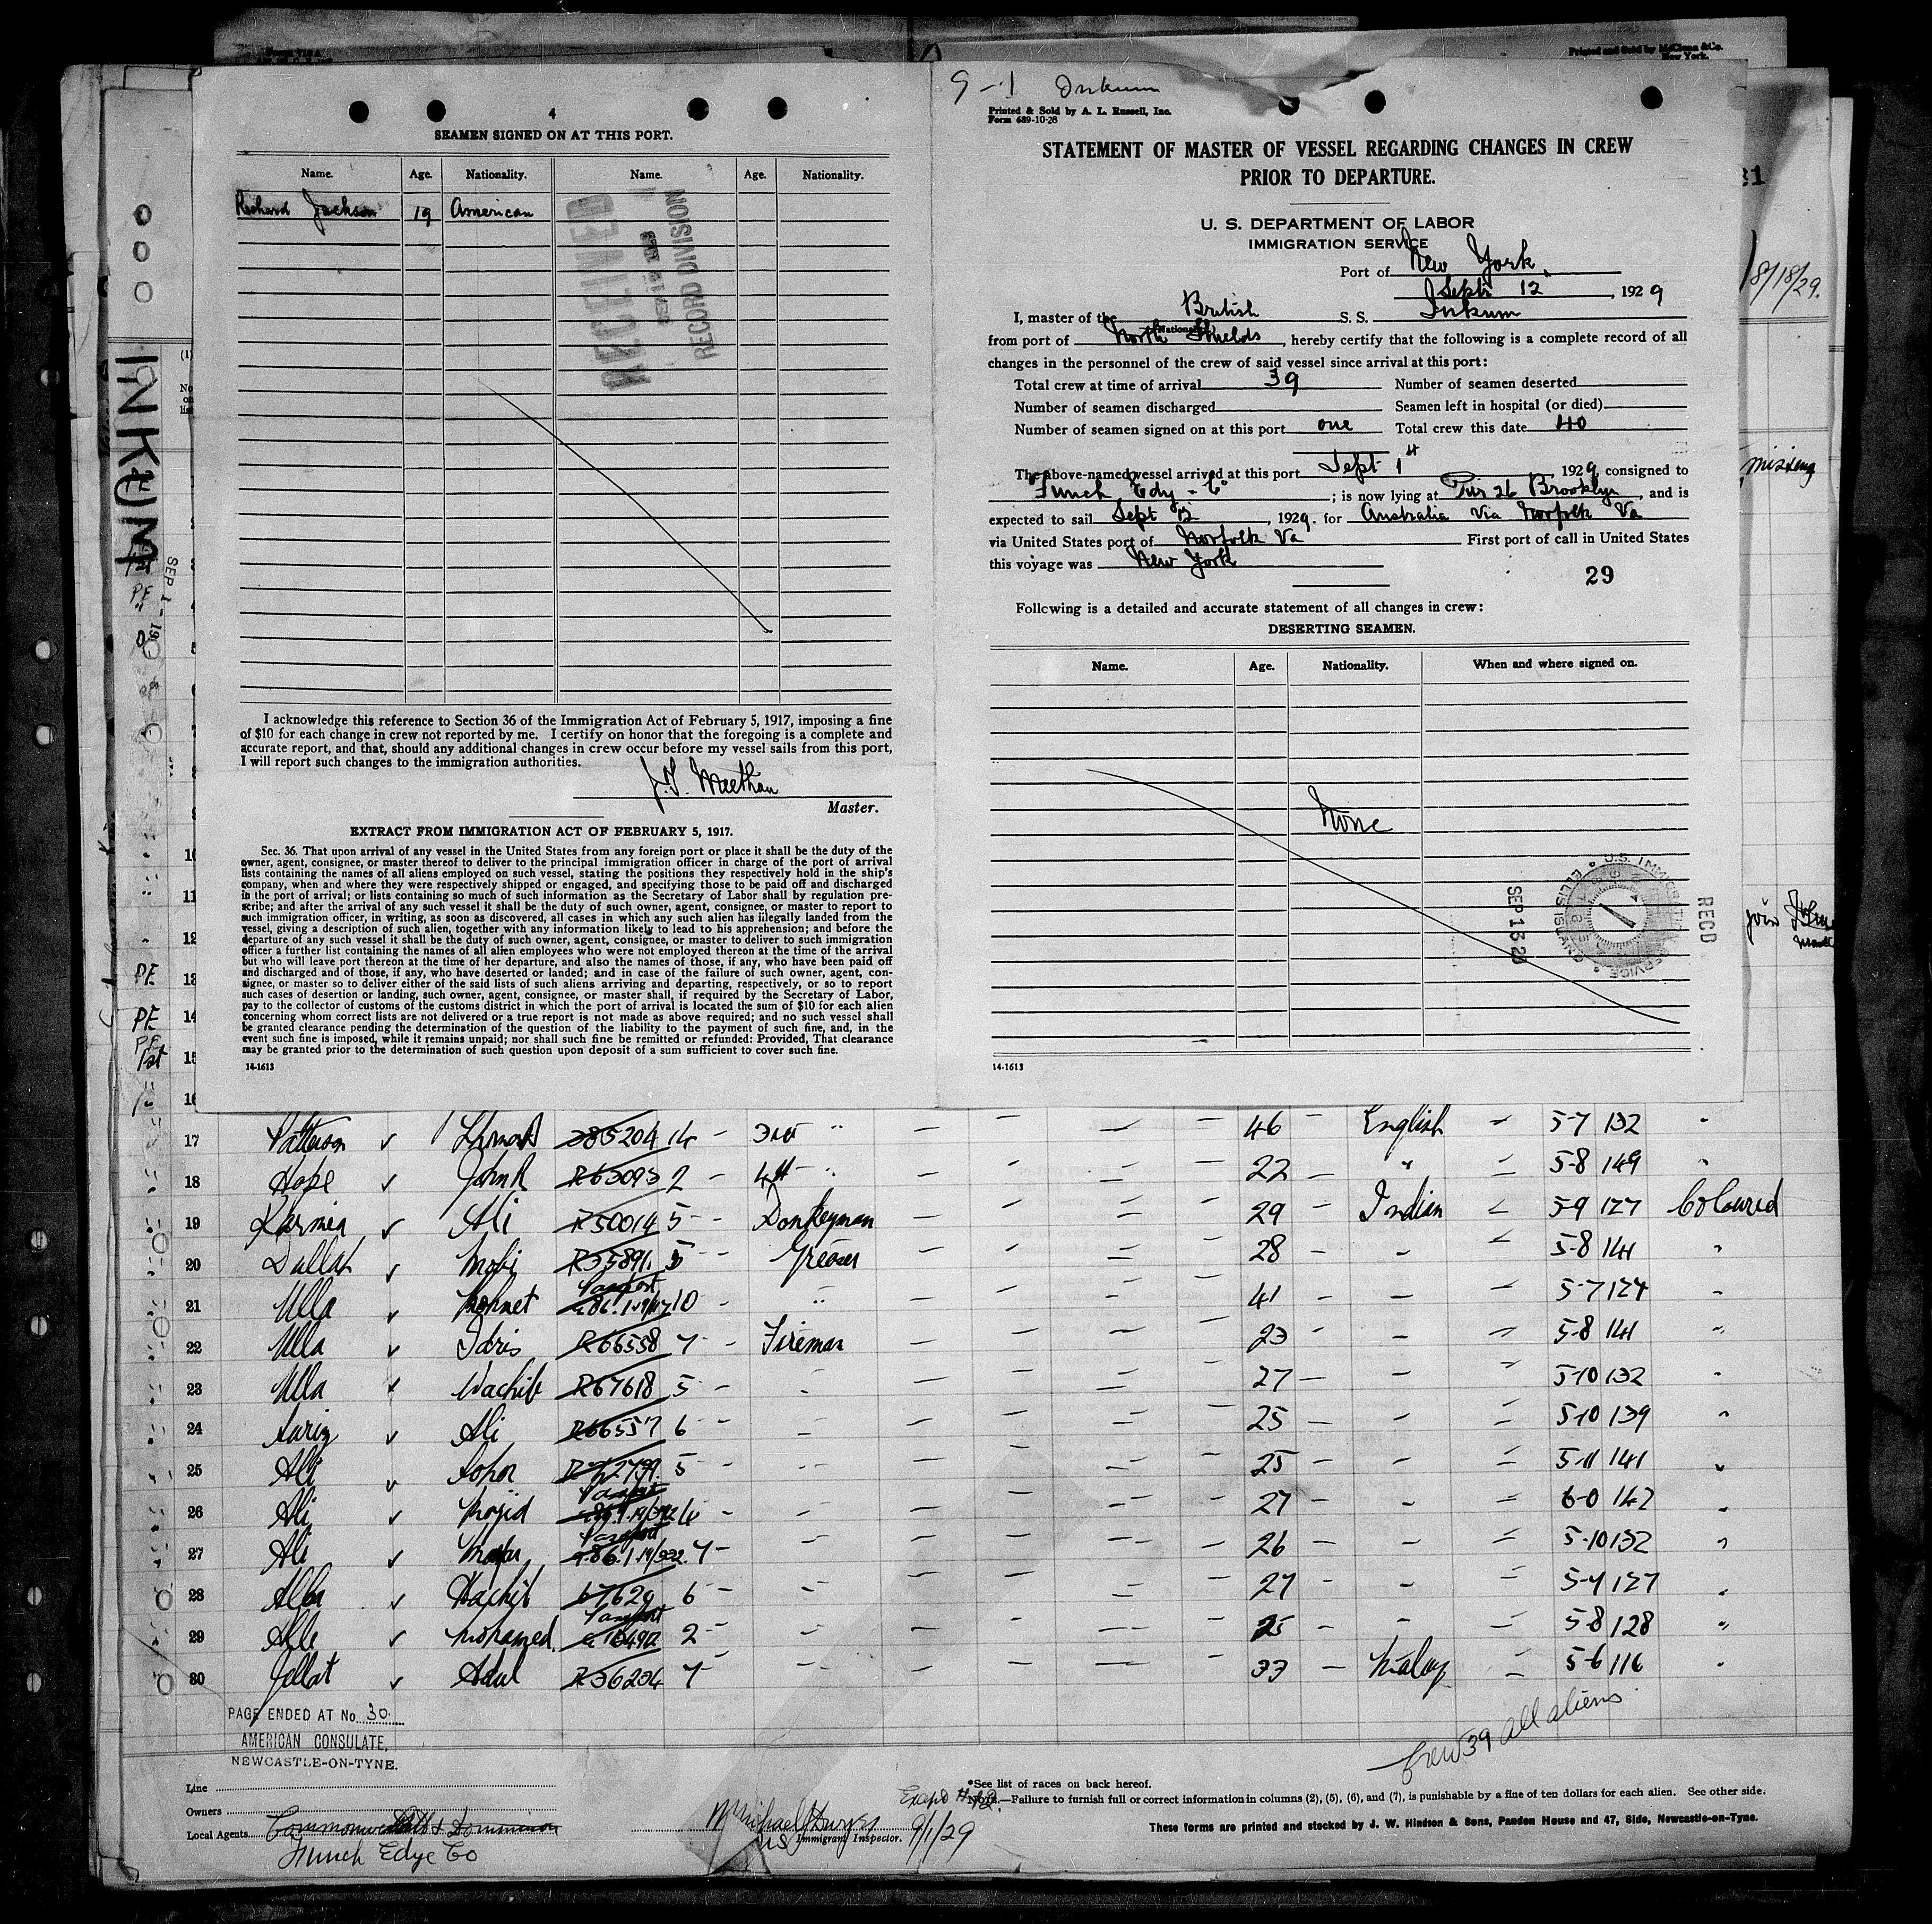 Printed and Sold by McClunn & Co.
New York.
4
SEAMEN SIGNED ON AT THIS PORT.
Name. Age. Nationality. Name. Age. Nationality.
Richard Jackson 19 American
RECEIVED
RECORD DIVISION
I acknowledge this reference to Section 36 of the Immigration Act of February 5, 1917, imposing a fine
of $10 for each change in crew not reported by me. I certify on honor that the foregoing is a complete and
accurate report, and that, should any additional changes in crew occur before my vessel sails from this port,
I will report such changes to the immigration authorities.
J.T. Meethan
Master.
EXTRACT FROM IMMIGRATION ACT OF FEBRUARY 5, 1917.
Sec. 36. That upon arrival of any vessel in the United States from any foreign port or place it shall be the duty of the
owner, agent, consignee, or master thereof to deliver to the principal immigration officer in charge of the port of arrival
lists containing the names of all aliens employed on such vessel, stating the positions they respectively hold in the ship's
company, when and where they were respectively shipped or engaged, and specifying those to be paid off and discharged
in the port of arrival; or lists containing so much of such information as the Secretary of Labor shall by regulation pre-
scribe; and after the arrival of any such vessel it shall be the duty of such owner, agent, consignee, or master to report to
such immigration officer, in writing, as soon as discovered, all cases in which any such alien has illegally landed from the
vessel, giving a description of such alien, together with any information likely to lead to his apprehension; and before the
departure of any such vessel it shall be the duty of such owner, agent, consignee, or master to deliver to such immigration
officer a further list containing the names of all alien employees who were not employed thereon at the time of the arrival
but who will leave port thereon at the time of her departure, and also the names of those, if any, who have been paid off
and discharged and of those, if any, who have deserted or landed; and in case of the failure of such owner, agent, con-
signee, or master so to deliver either of the said lists of such aliens arriving and departing, respectively, or so to report
such cases of desertion or landing, such owner, agent, consignee, or master shall, if required by the Secretary of Labor,
pay to the collector of customs of the customs district in which the port of arrival is located the sum of $10 for each alien
concerning whom correct lists are not delivered or a true report is not made as above required; and no such vessel shall
be granted clearance pending the determination of the question of the liability to the payment of such fine, and, in the
event such fine is imposed, while it remains unpaid; nor shall such fine be remitted or refunded: Provided, That clearance
may be granted prior to the determination of such question upon deposit of a sum sufficient to cover such fine.
14-1613
9-1 Inkum
Printed & Sold by A. L. Russell, Inc.
Form 689-10-28
STATEMENT OF MASTER OF VESSEL REGARDING CHANGES IN CREW
PRIOR TO DEPARTURE.
U. S. DEPARTMENT OF LABOR
IMMIGRATION SERVICE
Port of New York
Sept 12, 1929
I, master of the British S. S. Inkum
(Nationality)
from port of North Shields, hereby certify that the following is a complete record of all
changes in the personnel of the crew of said vessel since arrival at this port:
Total crew at time of arrival 39 Number of seamen deserted
Number of seamen discharged Seamen left in hospital (or died)
Number of seamen signed on at this port one Total crew this date 40
The above-named vessel arrived at this port Sept 1st 1929, consigned to
Funch Edy & Co; is now lying at Pier 26 Brooklyn, and is
expected to sail Sept 12, 1929. for Australia Via Norfolk Va
via United States port of Norfolk Va First port of call in United States
this voyage was New York
29
Following is a detailed and accurate statement of all changes in crew:
DESERTING SEAMEN.
Name. Age. Nationality. When and where signed on.
None
U.S. IMMIGRATION SERVICE ELLIS ISLAND
SEP 13 29
RECD
14-1613
8/18/29.
missing
join
INKUM
SEP 1 - 19
1st
PE
11
12
PE 13
PE 14
PE
1st 15
16
17 Patterson Thomas 385204 14 3rd " 46 English 5-7 132 "
18 Hope John R R63093 2 4th " 22 " 5-8 149 "
19 Karmia Ali R50014 5 Donkeyman 29 Indian 5-9 127 Coloured
20 Dullah Mobi R35891 5 Greaser 28 5-8 141 "
21 Ulla Mohmet Passport 10 " 41 5-7 127 "
22 Ulla Idris R66558 7 Fireman 23 5-8 141 "
23 Ulla Wachib R67618 5 27 5-10 132 "
24 Ali R66557 6 25 5-10 139 "
25 Ali 5 25 5-11 141 "
26 Ali Mojid Passport 27 6-0 147 "
27 Ali Passport 7 26 5-10 132 "
28 67629 6 27 127 "
29 Alli Mohamed Passport 2 25 5-8 128 "
30 Jellat Adul R36234 7 33 Malay 5-6 116 "
PAGE ENDED AT No. 30
AMERICAN CONSULATE,
NEWCASTLE-ON-TYNE.
Crew 39 all aliens
Line
Owners
Local Agents Commonwealth & Dominion
Funch Edye Co
US Immigrant Inspector. 9/1/29
*See list of races on back hereof.
Note.—Failure to furnish full or correct information in columns (2), (5), (6), and (7), is punishable by a fine of ten dollars for each alien. See other side.
These forms are printed and stocked by J. W. Hindson & Sons, Pandon House and 47, Side, Newcastle-on-Tyne.